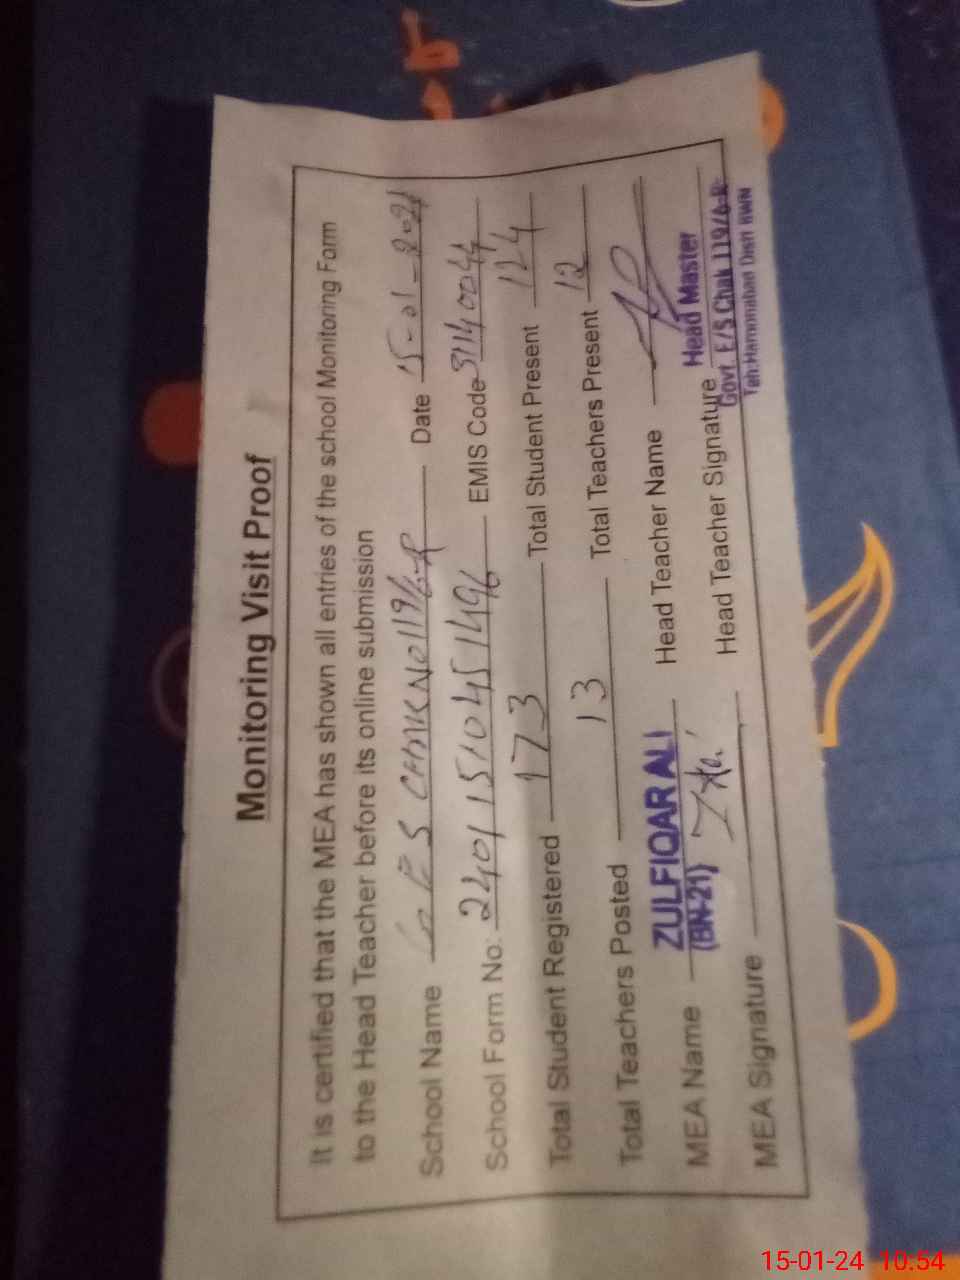 Monitoring Visit Proof
It is certified that the MEA has shown all entries of the school Monitoring Form
to the Head Teacher before its online submission
School Name G E S CHAK No 119/6-R Date 15-01-2024
School Form No: 24011510451496 EMIS Code 31140044
Total Student Registered 173 Total Student Present 124
Total Teachers Posted 13 Total Teachers Present 12
MEA Name ZULFIQAR ALI (BN-21) Head Teacher Name
MEA Signature Head Teacher Signature
Head Master
Govt. E/S Chak 119/6-R
Teh: Haroonabad Distt BWN
15-01-24 10:54